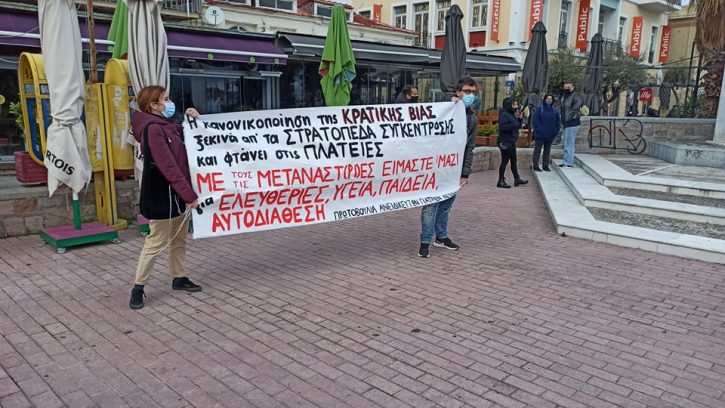 Public
Public
Public
Public
Public
Public
Η κανονικοποίηση της ΚΡΑΤΙΚΗΣ ΒΙΑΣ
ξεκινά απ' τα ΣΤΡΑΤΟΠΕΔΑ ΣΥΓΚΕΝΤΡΩΣΗΣ
και φτάνει στις ΠΛΑΤΕΙΕΣ
ΜΕ ΤΟΥΣ ΤΙΣ ΜΕΤΑΝΑΣΤ(ΡΙ)ΕΣ ΕΙΜΑΣΤΕ ΜΑΖΙ
για ΕΛΕΥΘΕΡΙΕΣ, ΥΓΕΙΑ, ΠΑΙΔΕΙΑ,
ΑΥΤΟΔΙΑΘΕΣΗ ΠΡΩΤΟΒΟΥΛΙΑ ΑΝΕΙΔΙΚΕΥΤΩΝ ΓΙΑΤΡΩΝ
ARTOIS